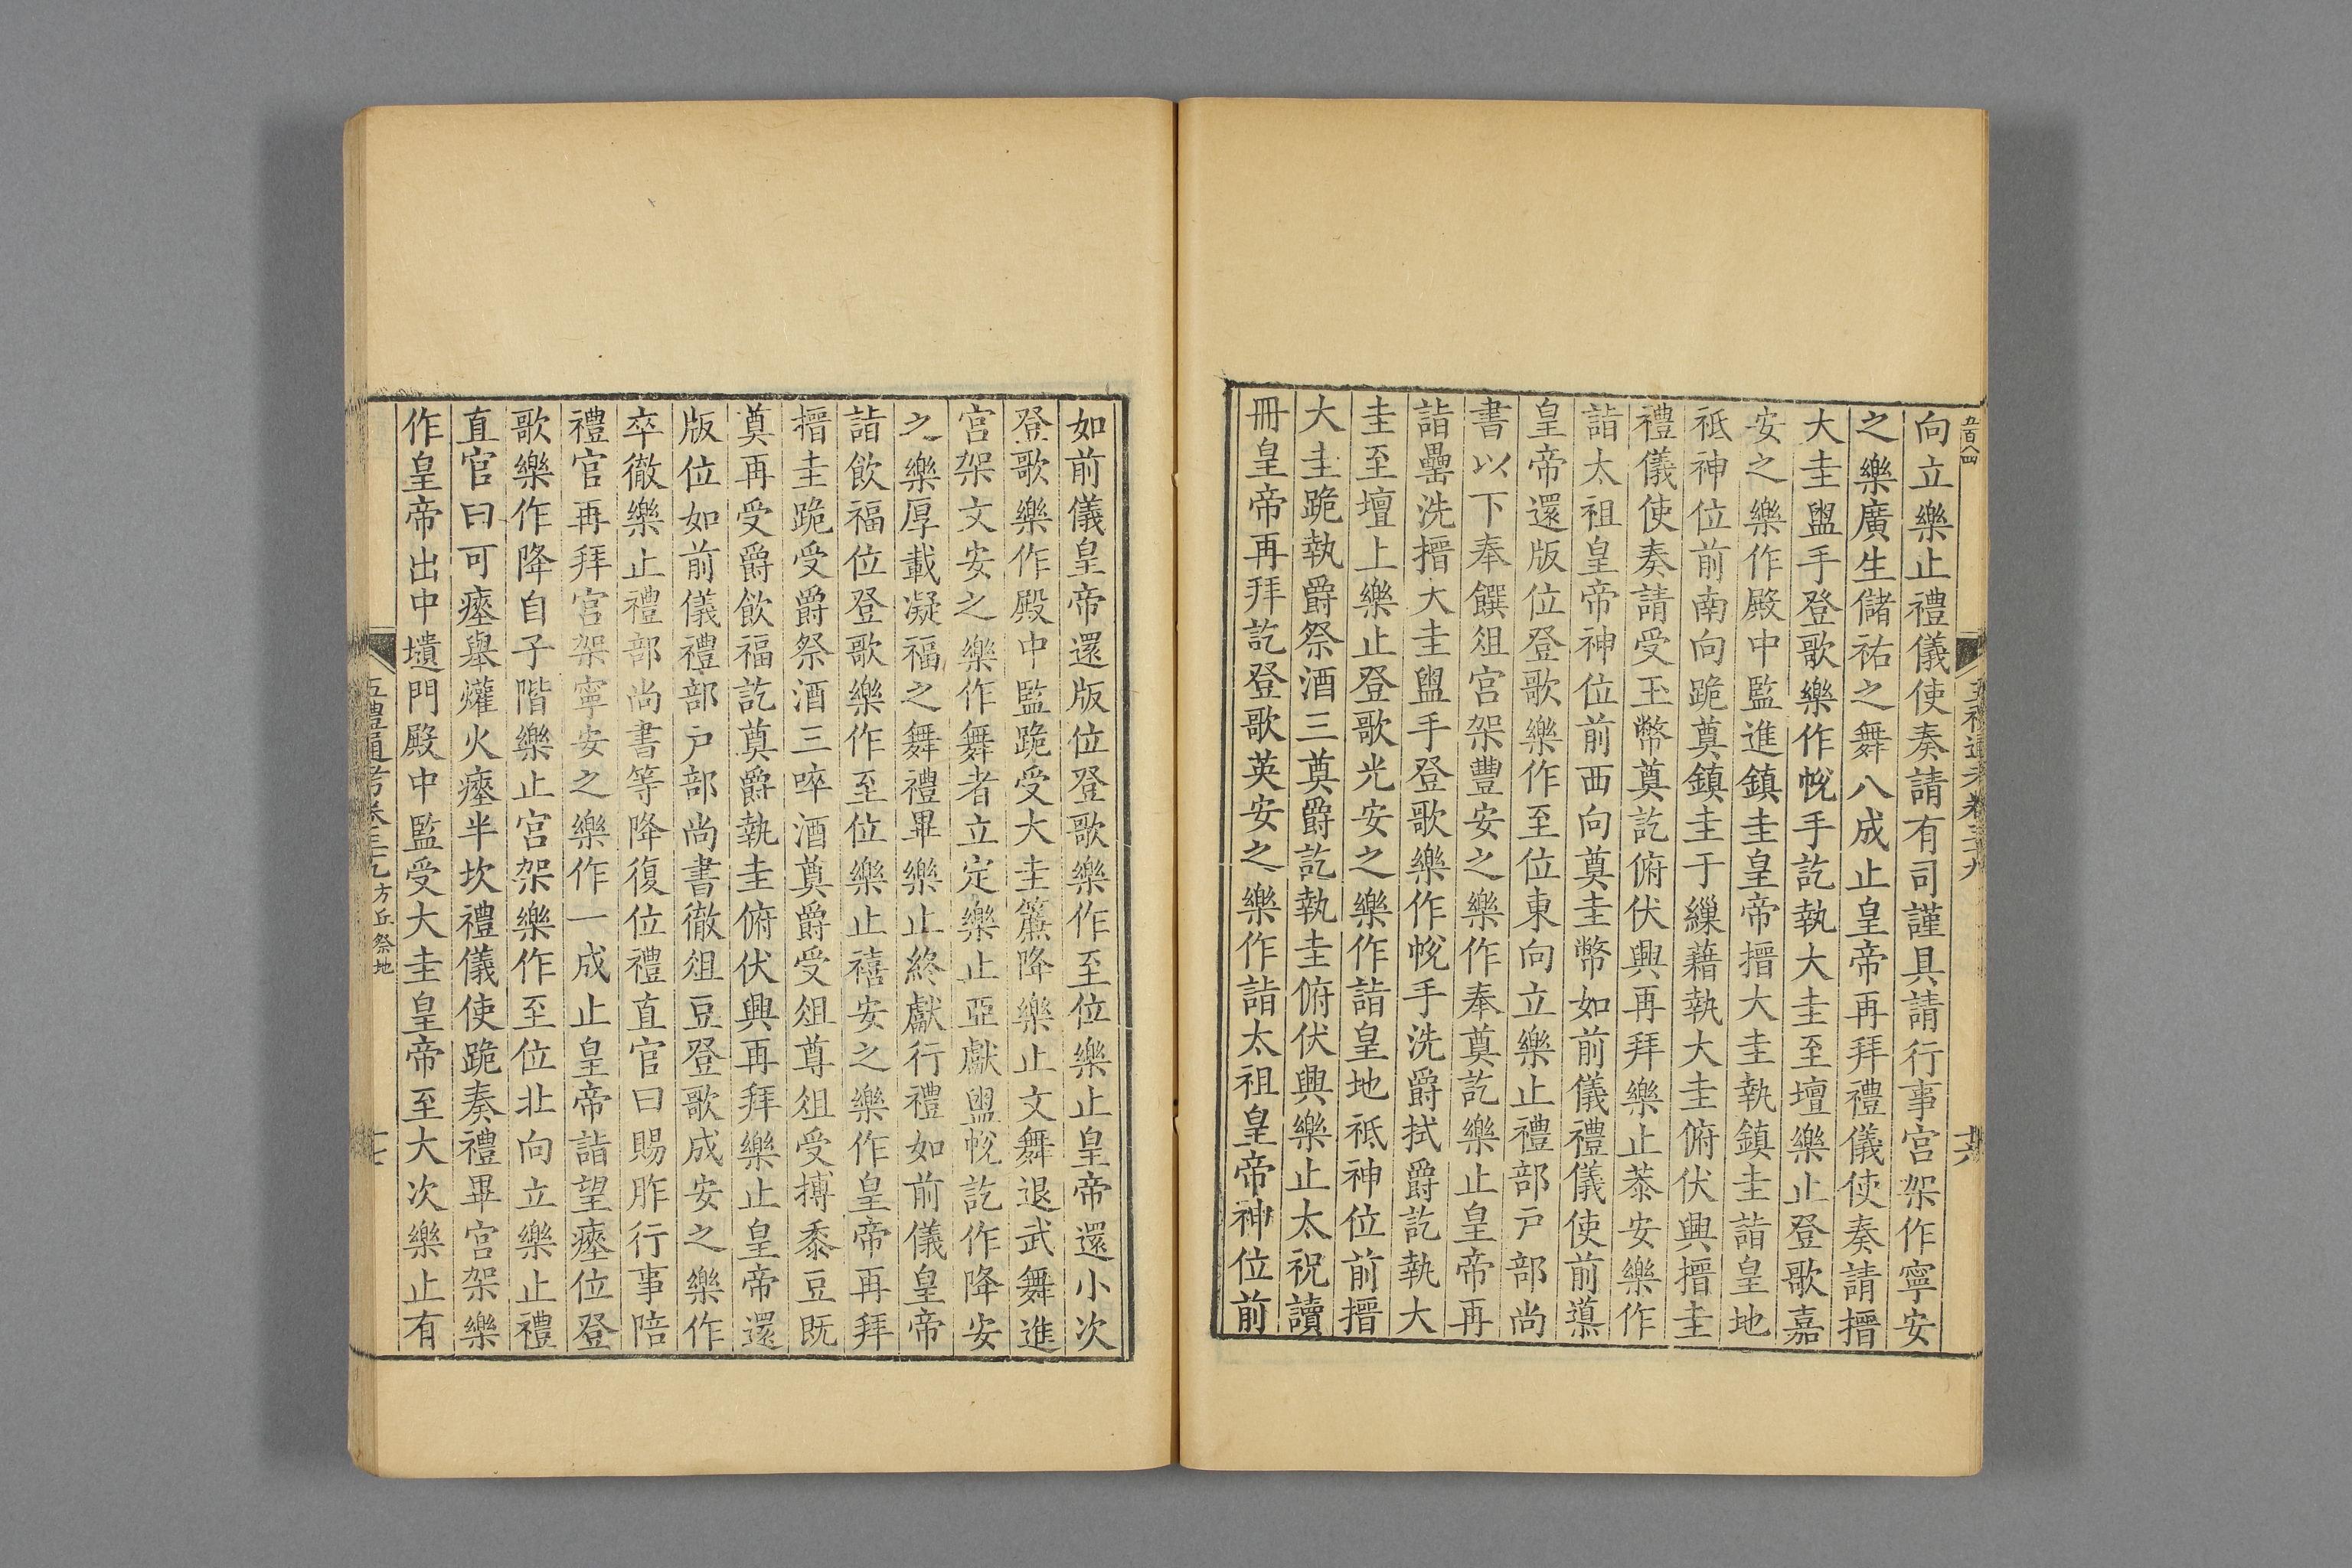 五百八四
五禮通考卷三十九
十六
向立樂止禮儀使奏請有司謹具請行事宮架作寧安
之樂廣生儲祐之舞八成止皇帝再拜禮儀使奏請搢
大圭盥手登歌樂作帨手訖執大圭至壇樂止登歌嘉
安之樂作殿中監進鎮圭皇帝搢大圭執鎮圭詣皇地
祇神位前南向跪奠鎮圭于繅藉執大圭俯伏興搢圭
禮儀使奏請受玉幣奠訖俯伏興再拜樂止㳟安樂作
詣太祖皇帝神位前西向奠圭幣如前儀禮儀使前導
皇帝還版位登歌樂作至位東向立樂止禮部戶部尚
書以下奉饌俎宮架豐安之樂作奉奠訖樂止皇帝再
詣罍洗搢大圭盥手登歌樂作帨手洗爵拭爵訖執大
圭至壇上樂止登歌光安之樂作詣皇地祇神位前搢
大圭跪執爵祭酒三奠爵訖執圭俯伏興樂止太祝讀
冊皇帝再拜訖登歌英安之樂作詣太祖皇帝神位前
如前儀皇帝還版位登歌樂作至位樂止皇帝還小次
登歌樂作殿中監跪受大圭簾降樂止文舞退武舞進
宮架文安之樂作舞者立定樂止亞獻盥帨訖作降安
之樂厚載凝福之舞禮畢樂止終獻行禮如前儀皇帝
詣飲福位登歌樂作至位樂止禧安之樂作皇帝再拜
搢圭跪受爵祭酒三啐酒奠爵受俎尊俎受摶黍豆既
奠再受爵飲福訖奠爵執圭俯伏興再拜樂止皇帝還
版位如前儀禮部戶部尚書徹俎豆登歌成安之樂作
卒徹樂止禮部尚書等降復位禮直官曰賜胙行事陪
禮官再拜宮架寧安之樂作一成止皇帝詣望瘞位登
歌樂作降自子階樂止宮架樂作至位北向立樂止禮
直官曰可瘞舉爟火瘞半坎禮儀使跪奏禮畢宮架樂
作皇帝出中壝門殿中監受大圭皇帝至大次樂止有
五禮通考卷三十九 方丘祭地
十七